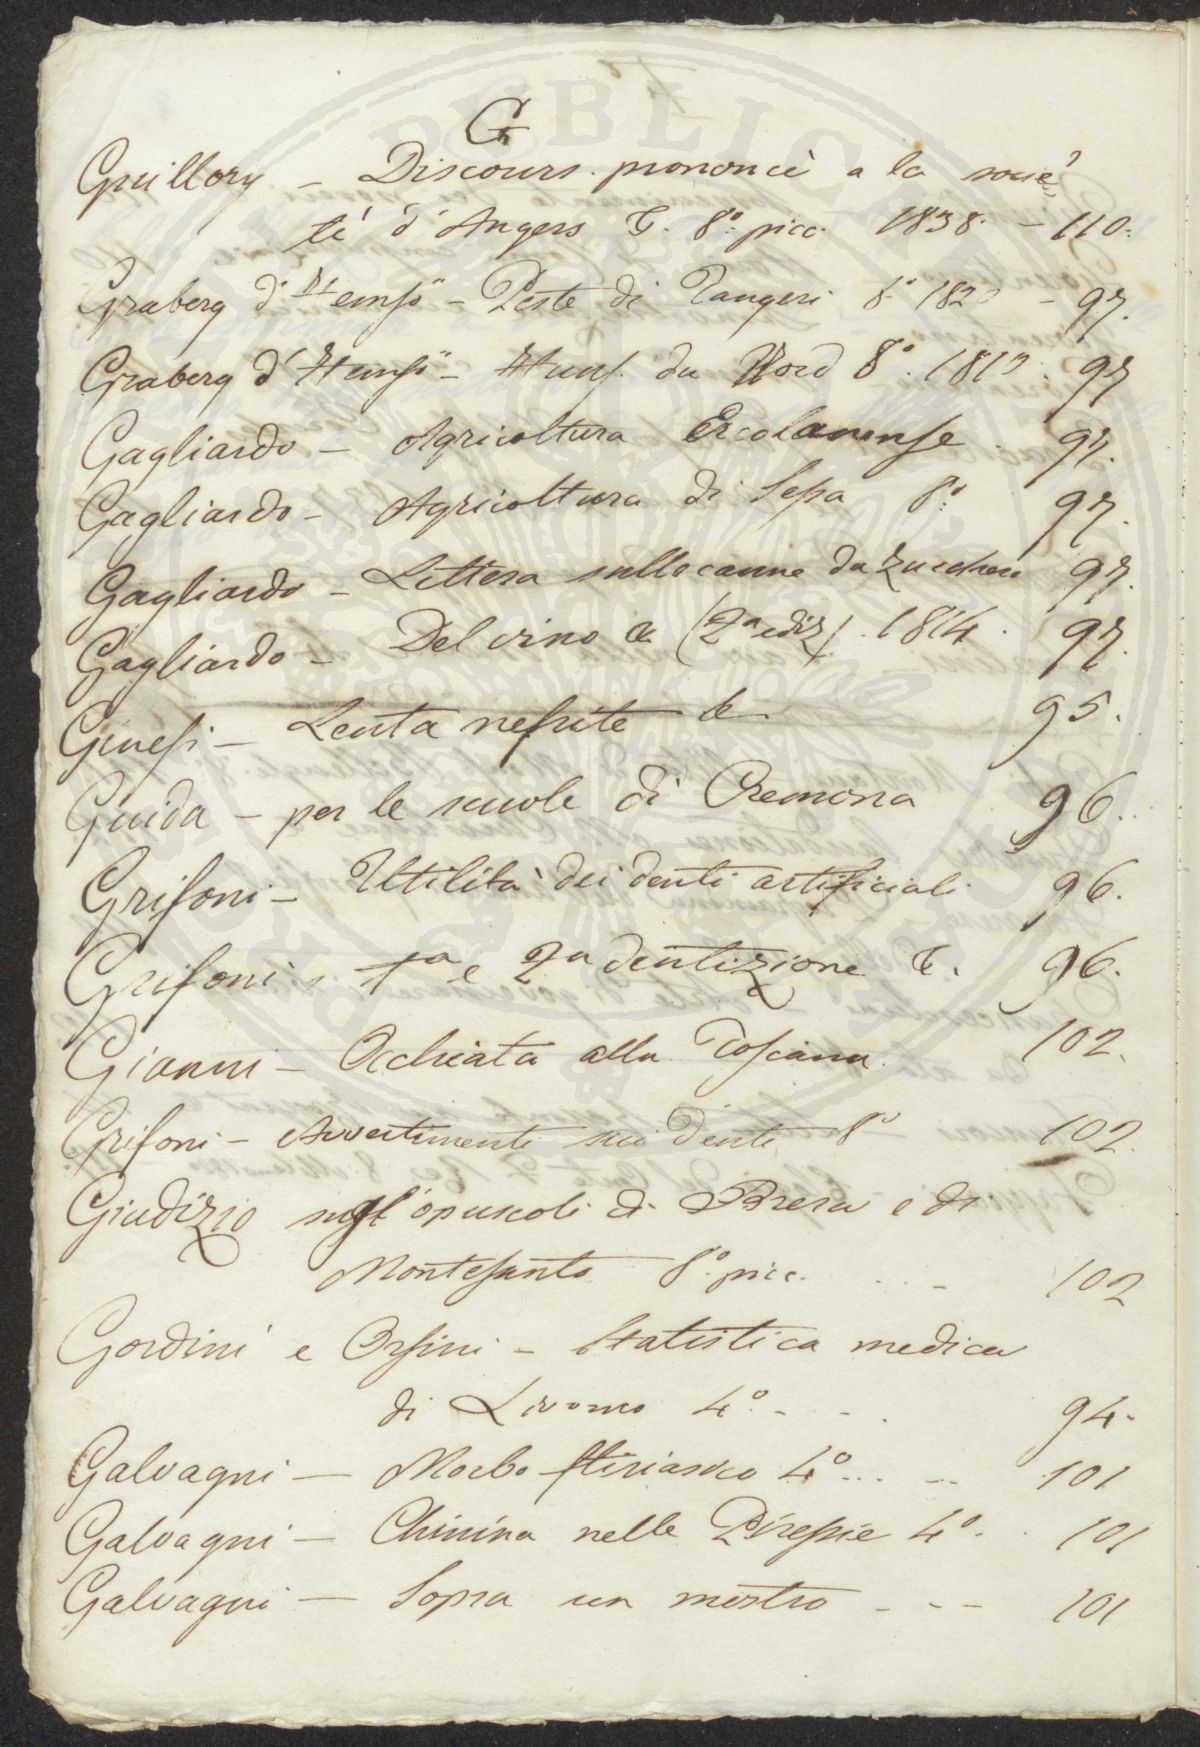 G
Guillory – Discours. prononcè a la socie
té d'Angers &. 8.° picc. 1838. – 110.
Graberg d'Hemsö – Peste di Tangeri 8.° 1820 – 97.
Graberg d'Hemsö – du Nord 8.° 97
Gagliardo – Agricoltura Ercolanense. 97.
Gagliardo – Agricoltura di Sessa 8.° 97.
Gagliardo – Lettera sulle canne da zucchero 97.
Gagliardo – Del vino & (2.a ediz) . 1814. 97.
Ginesi – Lenta nefrite & 95.
Guida – per le scuole di Cremona 96.
Grifoni – Utilità dei denti artificiali 96.
Grifoni 1.a e 2.a dentizione &. 96.
Gianni – Occhiata alla Toscana. 102.
Grifoni – Avvertimenti sui denti 8.° 102.
Giudizio sugl'opuscoli di Brera e di
Montesanto 8.° picc. . . – 102
Gordini e Orsini – Statistica medica
di Livorno 4.° - - . 94.
Galvagni – Morbo 4.° ... -- 101
Galvagni – Chinina nelle Piressie 4.° . 101
Galvagni – Sopra un mostro - - - 101